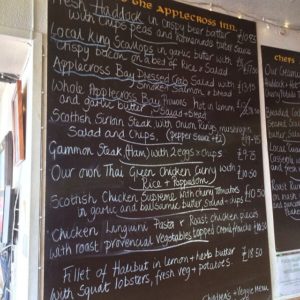 the APPLECROSS INN.
Fresh Haddock in crispy beer batter
with chips peas and homemade tartar sauce
Local King Scallops in garlic butter with
crispy bacon on a bed of rice & Salad
Applecross Bay Dressed Crab Salad with
Smoked Salmon &
Whole Applecross Bay Prawns Hot in lemon
and garlic butter Salad & Bread
Scottish Sirloin Steak with Onion Rings, mushrooms
Salad and Chips. (pepper sauce +£2)
Gammon Steak (Ham) with 2 eggs & chips £9.95
Our own Thai Green Chicken Curry with
Rice & Poppadom £10.50
Scottish Chicken Supreme with cherry tomatoes
in garlic and balsamic butter salad & chips
Chicken Linguini Pasta & Roast chicken pieces
with roast provencial vegetables topped creme fraiche £10.50
Fillet of Halibut in lemon & herb butter £18.50
with Squat lobsters, fresh veg & potatoes.
Veggie Menu
Chefs
Our